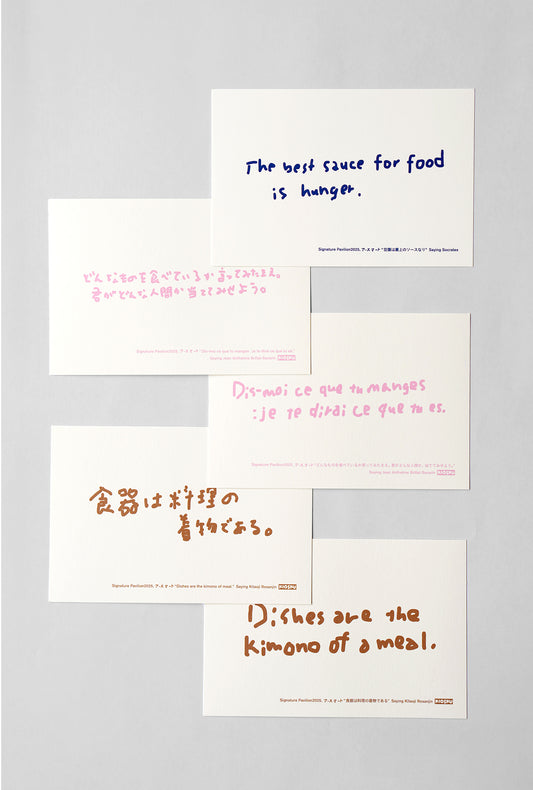 The best sauce for food
is hunger.
Signature Pavilion2025, アースマート "空腹は最上のソースなり" Saying Socrates
どんなものを食べているか言ってみたまえ。
君がどんな人間か当ててみせよう。
Signature Pavilion2025, アースマート "Dis-moi ce que tu manges : je te dirai ce que tu es."
Saying Jean Anthelme Brillat-Savarin
Dis-moi ce que tu manges
:je te dirai ce que tu es.
Signature Pavilion2025, アースマート
Saying Jean Anthelme Brillat-Savarin
食器は料理の
着物である。
Signature Pavilion2025, アースマート "Dishes are the kimono of meal." Saying Kitaoji Rosanjin
Dishes are the
kimono of a meal.
Signature Pavilion2025, アースマート "食器は料理の着物である" Saying Kitaoji Rosanjin